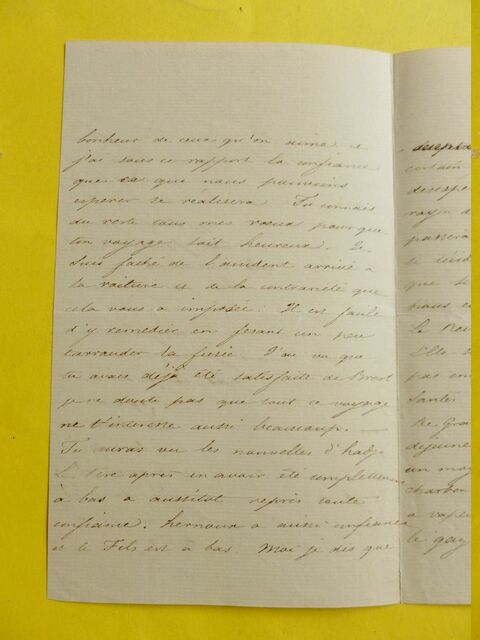 bonheur de ceux qu'on aime et
j'ai sous ce rapport la confiance
que ce que nous pouvions
espérer se réalisera. Tu connais
du reste tous mes vœux pour que
ton voyage soit heureux. Je
suis faché de l'accident arrivé a
la voiture et de la contrariété que
cela vous a imposée: Il est facile
d'y remedier en fesant un peu
la fusée. J'ai vu que
tu avais déjà été satisfaite de Brest
je ne doute pas que tout ce voyage
ne t'interesse aussi beaucoup.
Tu auras vu les nouvelles d'
Le Père après en avoir été complettement
à bas a aussitot repris toute
confiance. hernoux a aussi confiance
et le Fils est à bas. Moi je dis que
certain
desespe
rayon d
passera
que si
nous
pas en
Santés
dejeune
un ma
charbon
a vape
le gaz